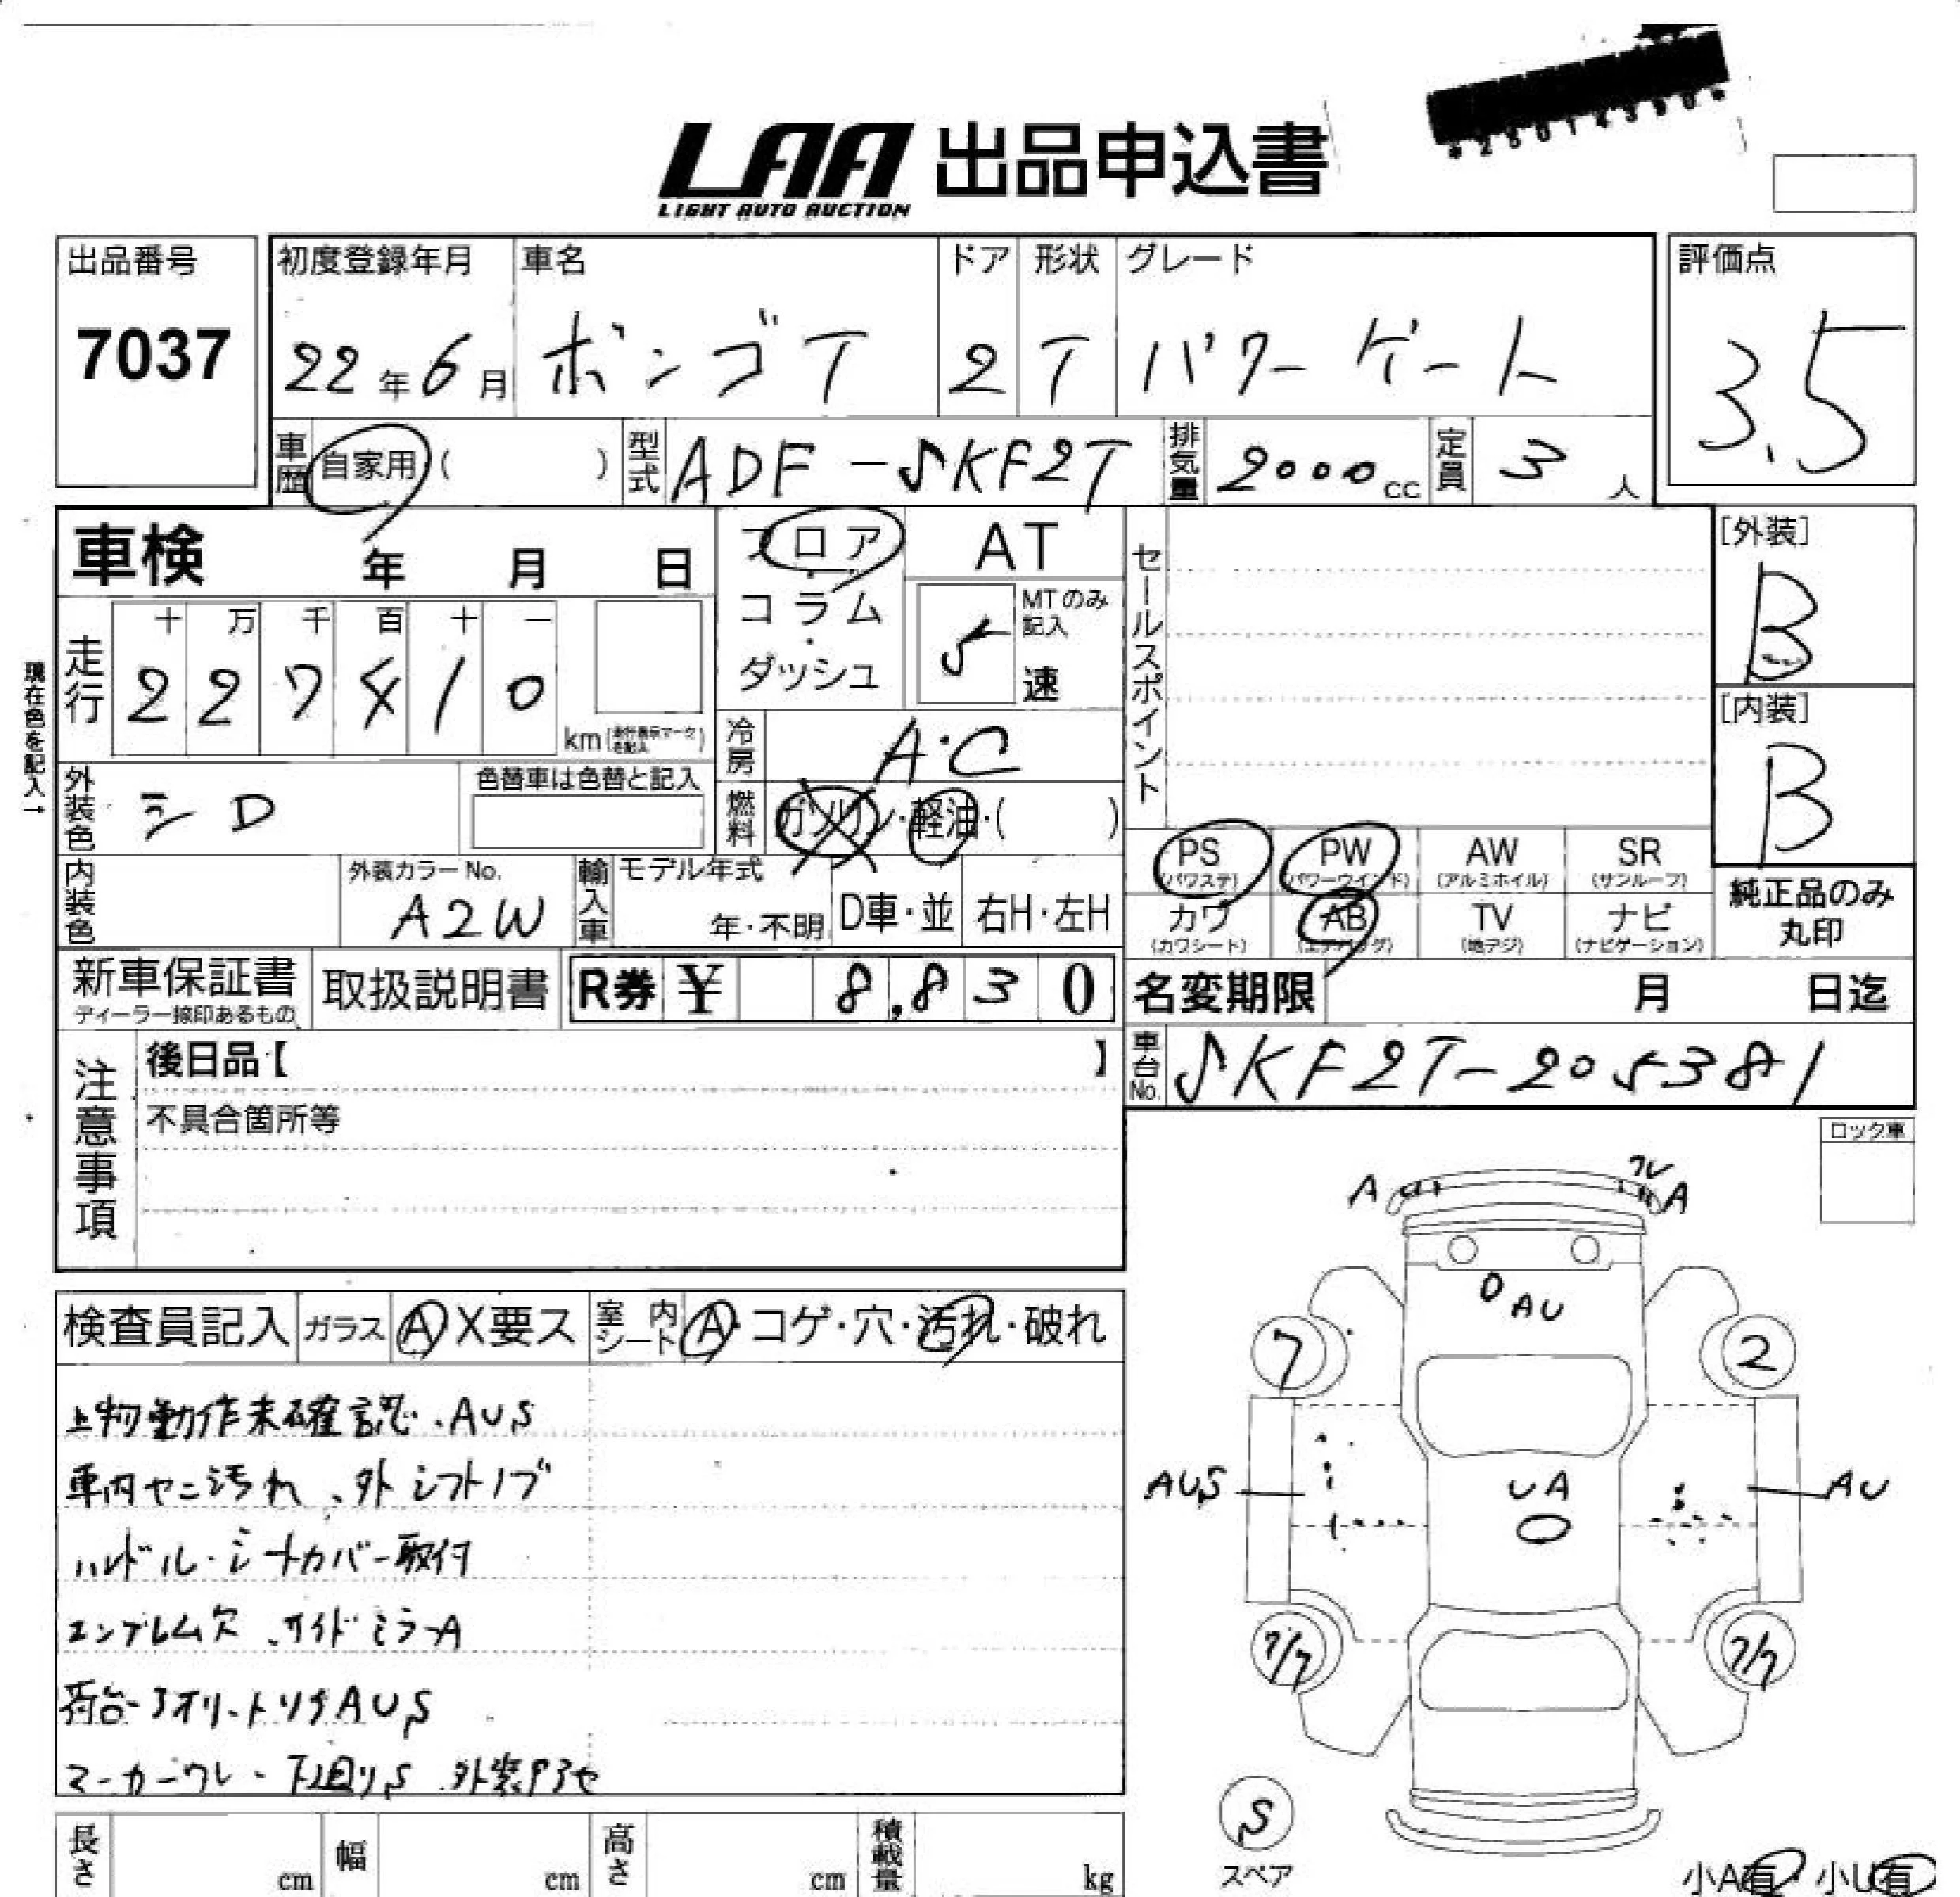 LAA 出品申込書
LIGHT AUTO AUCTION
出品番号
7037
初度登録年月
22年6月
車名
ボンゴT
ドア
2
形状
T
グレード
パワーゲート
評価点
3.5
車歴 自家用 ( )
型式 ADF-SKF2T
排気量 2000cc
定員 3人
車検 年 月 日
フロア・コラム・ダッシュ
AT
MTのみ記入
5速
セールスポイント
[外装]
B
[内装]
B
現在色を記入→
走行
十 万 千 百 十 一
2 2 7 4 1 0
km(走行表示マークを記入)
冷房 A・C
燃料 ガソリン・軽油・( )
外装色 シD
色替車は色替と記入
内装色
外装カラーNo.
A2W
輸入車
モデル年式
年・不明
D車・並
右H・左H
PS (パワステ)
PW (パワーウインド)
AW (アルミホイル)
SR (サンルーフ)
カワ (カワシート)
AB (エアバッグ)
TV (地デジ)
ナビ (ナビゲーション)
純正品のみ丸印
新車保証書
ディーラー捺印あるもの
取扱説明書
R券 ¥ 8,830
名変期限 月 日迄
車台No. SKF2T-205381
注意事項
後日品【 】
不具合箇所等
ロック車
検査員記入
ガラス A X要ス
室内シート A・コゲ・穴・汚れ・破れ
上物動作未確認、AUS
車内ヤニ汚れ、外シフトノブ
ハンドル・シートカバー取付
エンブレム欠、サイドミラーA
荷台・アオリ・トリイAUS
マーカーワレ・下廻りS
A
ワレ
A
AU
7
2
AUS
UA
AU
7/7
7/7
S
スペア
長さ cm
幅 cm
高さ cm
積載量 kg
小A有・小U有